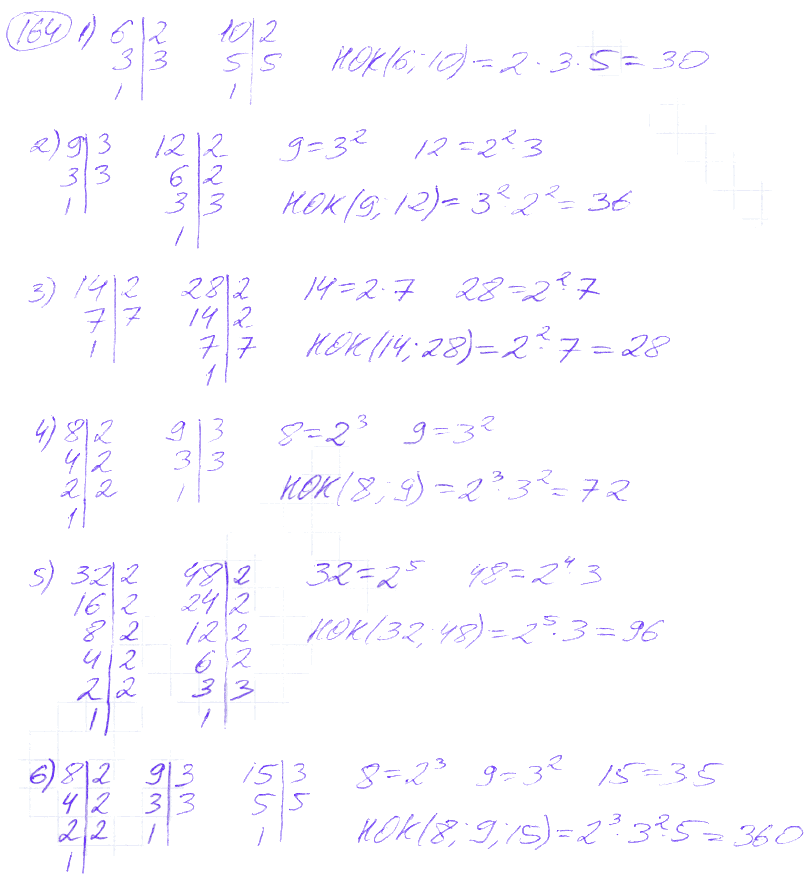 164 1) 6|2 10|2
3|3 5|5 НОК(6; 10) = 2 · 3 · 5 = 30
1| 1|
2) 9|3 12|2 9 = 3² 12 = 2² · 3
3|3 6|2
1| 3|3 НОК(9; 12) = 3² · 2² = 36
1|
3) 14|2 28|2 14 = 2 · 7 28 = 2² · 7
7|7 14|2
1| 7|7 НОК(14; 28) = 2² · 7 = 28
1|
4) 8|2 9|3 8 = 2³ 9 = 3²
4|2 3|3
2|2 1| НОК(8; 9) = 2³ · 3² = 72
1|
5) 32|2 48|2 32 = 2⁵ 48 = 2⁴ 3
16|2 24|2
8|2 12|2 НОК(32; 48) = 2⁵ · 3 = 96
4|2 6|2
2|2 3|3
1| 1|
6) 8|2 9|3 15|3 8 = 2³ 9 = 3² 15 = 3 5
4|2 3|3 5|5
2|2 1| 1| НОК(8; 9; 15) = 2³ · 3² · 5 = 360
1|